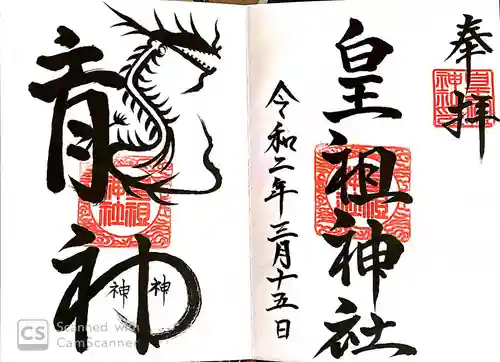 奉拝
皇祖神社
令和二年三月十五日
龍神
神
神
CS Scanned with
CamScanner